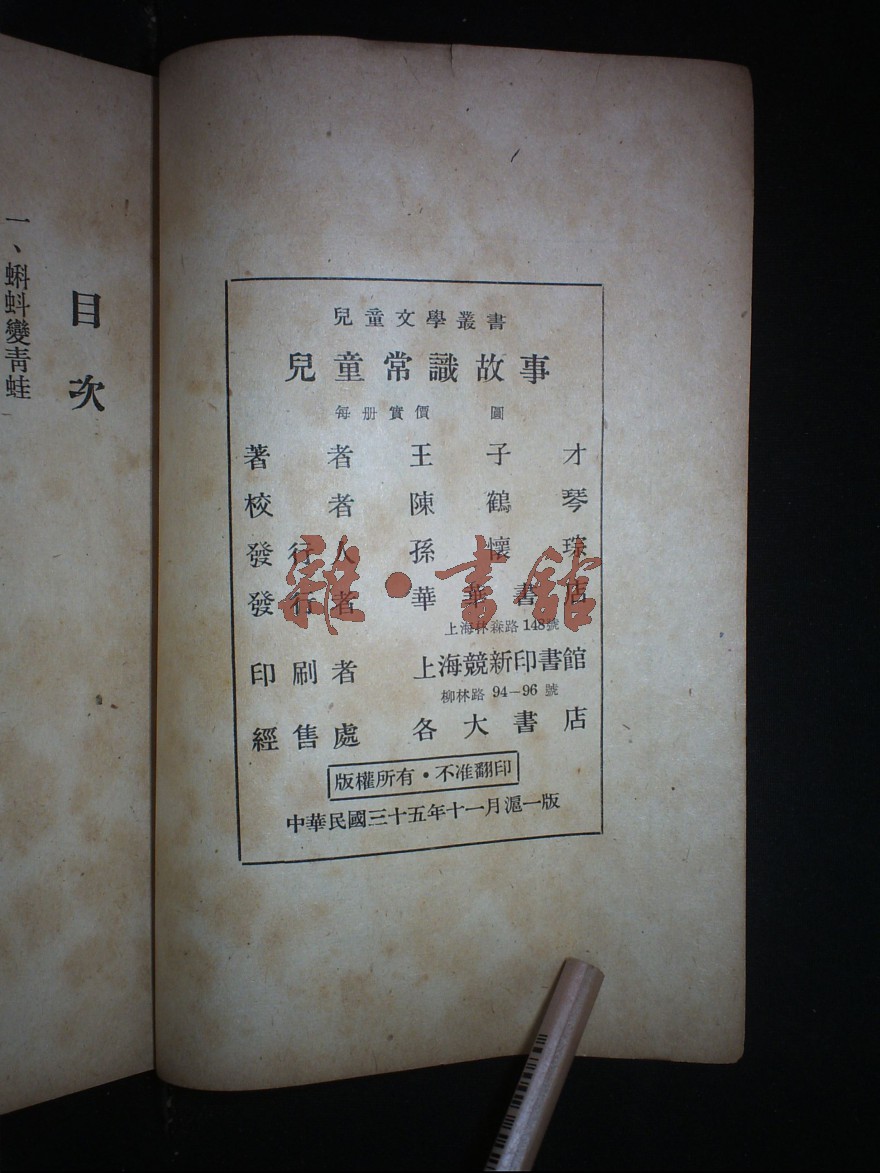 兒童文學叢書
兒童常識故事
每册實價 圓
著者 王子才
校者 陳鶴琴
發行人 孫懷琮
發行者 華華書店
上海林森路148號
印刷者 上海競新印書館
柳林路 94-96 號
經售處 各大書店
版權所有・不准翻印
中華民國三十五年十一月滬一版
目次
一、蝌蚪變青蛙
雜・書館